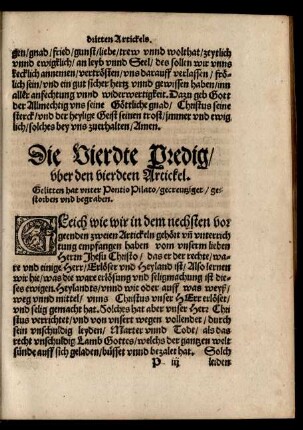 dritten Artickels.
gen/gnad/fried/gunst/liebe/trew vnnd wolthat/zeytlich
vnnd ewigklich/ an leyb vnnd Seel/ des sollen wir vnns
kecklich annemen/vertrösten/vns darauff verlassen/ frö-
lich sein/vnd ein gut sicher hertz vnnd gewissen haben/inn
aller anfechtung vnnd widerwertigkeit. Dazu geb Gott
der Allmechtig vns seine Göttliche gnad/ Christus seine
sterck/vnd der heylige Geist seinen trost/jmmer vnd ewig
lich/solches bey vns zuerhalten/Amen.
Die Vierdte Predig/
vber den vierdten Artickel.
Gelitten hat vnter Pontio Pilato/gecreutziget/ ge-
storben vnd begraben.
GLeich wie wir in dem nechsten vor
geenden zweien Artickeln gehört vñ vnterrich
tung empfangen haben vom vnserm lieben
Herrn Jhesu Christo/ das er der rechte/wa-
re vnd einige Herr/Erlöser vnd Heyland ist/Also lernen
wir hie/was die ware erlösung vnd seligmachung ist di-
ses ewigen Heylandts/vnnd wie oder auff was weyß/
weg vnnd mittel/ vnns Christus vnser HErr erlöset/
vnd selig gemacht hat. Solches hat aber vnser Herr Chri
stus verrichtet/vnd von vnsert wegen vollender/ durch
sein vnschuldig leyden/ Marter vnnd Todt/ als das
recht vnschuldig Lamb Gottes/welchs der gantzen welt
sünde auff sich geladen/büsset vnnd bezalet hat. Solch
P iij leiden